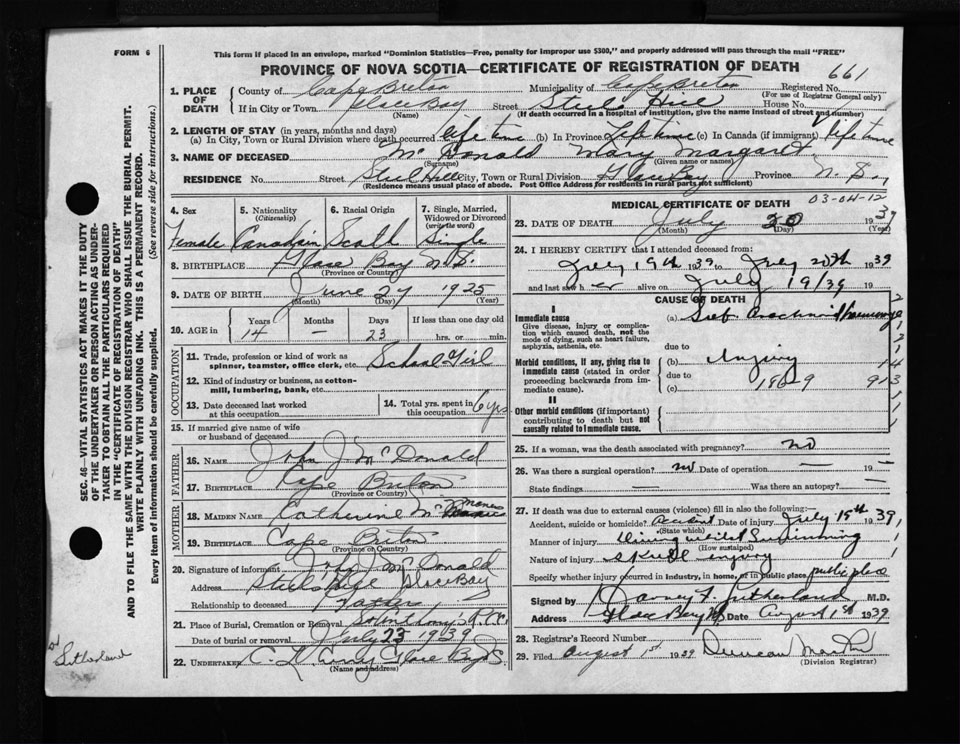 FORM 6
This form if placed in an envelope, marked "Dominion Statistics—Free, penalty for improper use $300," and properly addressed will pass through the mail "FREE"
PROVINCE OF NOVA SCOTIA—CERTIFICATE OF REGISTRATION OF DEATH
661
1. PLACE OF DEATH
County of Cape Breton Municipality of Cape Breton Registered No.
(For use of Registrar General only)
If in City or Town Glace Bay Street Steele Hill House No.
(Name) (If death occurred in a hospital of institution, give the name instead of street and number)
2. LENGTH OF STAY (in years, months and days)
(a) In City, Town or Rural Division where death occurred life time (b) In Province Life time (c) In Canada (if immigrant) life time
3. NAME OF DECEASED McDonald Mary Margaret
(Surname) (Given name or names)
RESIDENCE No. Street Steel Hill City, Town or Rural Division Glace Bay Province N. S.
(Residence means usual place of abode. Post Office Address for residents in rural parts not sufficient)
4. Sex Female
5. Nationality (Citizenship) Canadian
6. Racial Origin
7. Single, Married, Widowed or Divorced (write the word) Single
8. BIRTHPLACE Glace Bay N. S.
(Province or Country)
9. DATE OF BIRTH June 27 1925
(Month) (Day) (Year)
10. AGE in Years Months Days If less than one day old
14 — 23 hrs. or min.
OCCUPATION
11. Trade, profession or kind of work as spinner, teamster, office clerk, etc. School Girl
12. Kind of industry or business, as cotton-mill, lumbering, bank, etc.
13. Date deceased last worked at this occupation
14. Total yrs. spent in this occupation 6 yrs
15. If married give name of wife or husband of deceased
FATHER
16. NAME John J McDonald
17. BIRTHPLACE Cape Breton
(Province or Country)
MOTHER
18. MAIDEN NAME Catherine Mc
19. BIRTHPLACE Cape Breton
(Province or Country)
20. Signature of informant John J. McDonald
Address Steele Hill Glace Bay
Relationship to deceased Father
21. Place of Burial, Cremation or Removal
Date of burial or removal July 23 1939
22. UNDERTAKER C. L Curry Glace Bay N.S.
(Name and address)
MEDICAL CERTIFICATE OF DEATH
03-04-12
23. DATE OF DEATH July 20 1939
(Month) (Day) (Year)
24. I HEREBY CERTIFY that I attended deceased from:
July 19th 1939 to July 20th 1939
and last saw her alive on July 19/39 19
CAUSE OF DEATH
I
Immediate cause
Give disease, injury or complication which caused death, not the mode of dying, such as heart failure, asphyxia, asthenia, etc.
(a) Sub. Arachnoid haemorrhage
due to
Morbid conditions, if any, giving rise to immediate cause (stated in order proceeding backwards from immediate cause).
(b) Injury
due to
(c) 186-9
II
Other morbid conditions (if important) contributing to death but not causally related to immediate cause.
25. If a woman, was the death associated with pregnancy? no
26. Was there a surgical operation? no Date of operation — 19 —
State findings — Was there an autopsy? —
27. If death was due to external causes (violence) fill in also the following:—
Accident, suicide or homicide? Accident Date of injury July 19th 1939
(State which)
Manner of injury Diving whilst Swimming
(How sustained)
Nature of injury skull injury
Specify whether injury occurred in industry, in home, or in public place public place
Signed by Harvey F. Sutherland M.D.
Address Glace Bay N.S. Date August 1st 1939
28. Registrar's Record Number
29. Filed August 1st 1939 Duncan
(Division Registrar)
SEC. 46—VITAL STATISTICS ACT MAKES IT THE DUTY
OF THE UNDERTAKER OR PERSON ACTING AS UNDERTAKER TO OBTAIN ALL THE PARTICULARS REQUIRED
IN THE "CERTIFICATE OF REGISTRATION OF DEATH"
AND TO FILE THE SAME WITH THE DIVISION REGISTRAR WHO SHALL ISSUE THE BURIAL PERMIT.
WRITE PLAINLY WITH UNFADING INK. THIS IS A PERMANENT RECORD.
Every item of information should be carefully supplied. (See reverse side for instructions.)
Sutherland